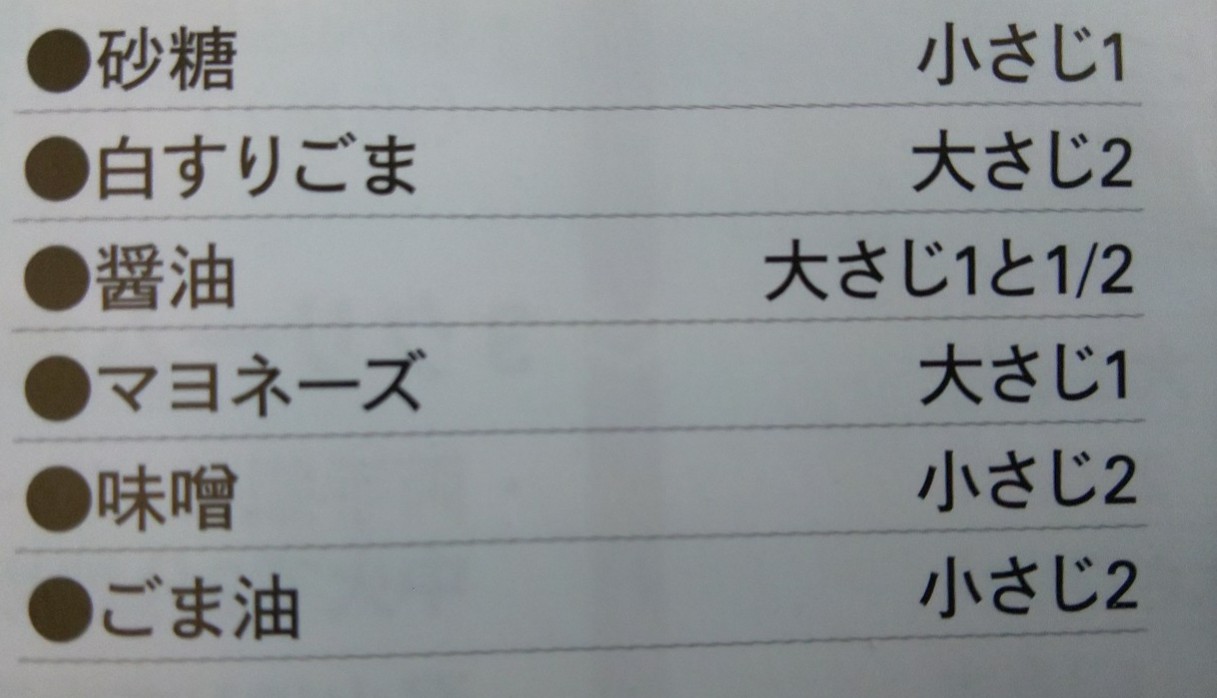 ●砂糖 小さじ1
●白すりごま 大さじ2
●醤油 大さじ1と1/2
●マヨネーズ 大さじ1
●味噌 小さじ2
●ごま油 小さじ2